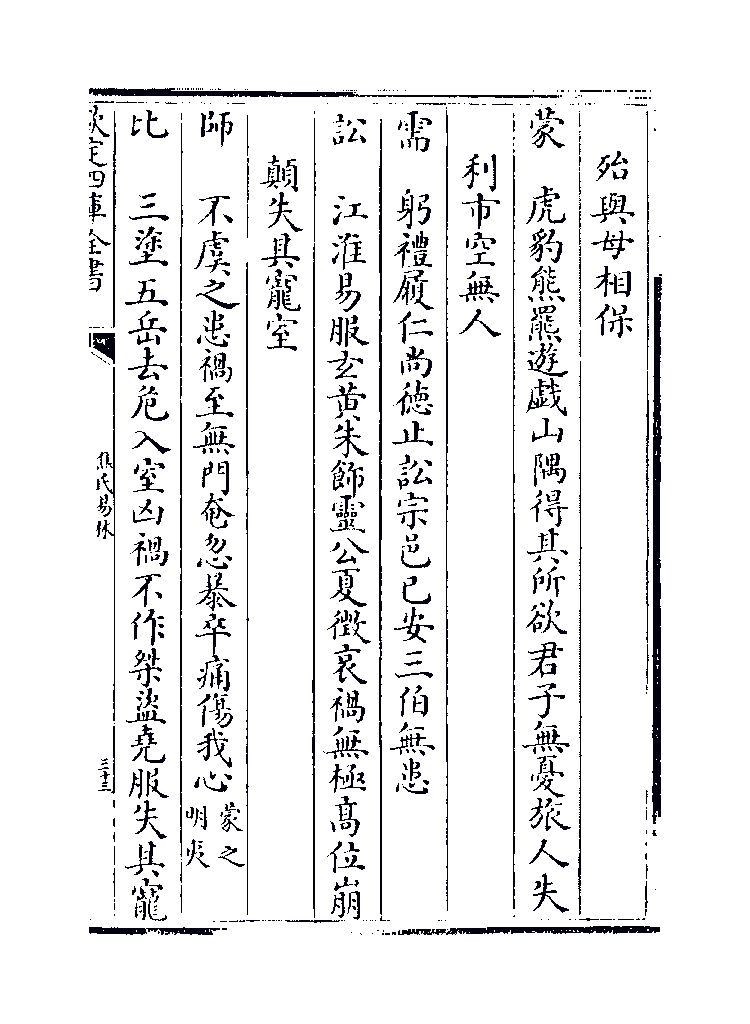 殆與母相保
蒙　虎豹熊羆遊戯山隅得其所欲君子無憂旅人失
利市空無人
需　躬禮履仁尚德止訟宗邑已安三伯無患
訟　江淮易服玄黄朱飾靈公夏徴哀禍無極髙位崩
顛失其寵室
師　不虞之患禍至無門奄忽暴卒痛傷我心蒙之
明夷
比　三塗五岳去危入室凶禍不作桀盜堯服失其寵
欽定四庫全書
焦氏易林
三十三